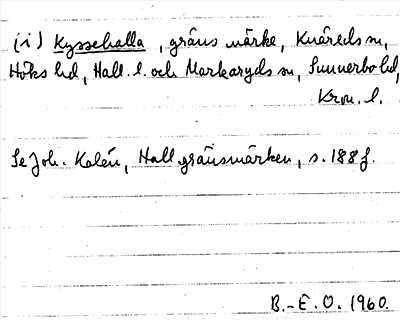 (i) Kyssehalla, gränsmärke, Knäreds sn,
Höks hd, Hall. l. och Markaryds sn, Sunnerbo hd,
Kron. l.
Se Joh. Kalén, Hall gränsmärken, s. 188 f.
B.-E. O. 1960.